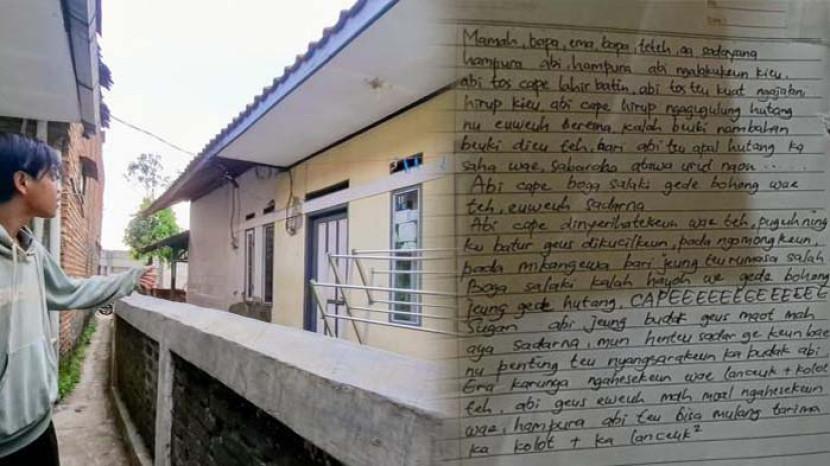 Mamah, bapa, ema, bapa, teteh, aa sadayana
hampura abi, hampura abi ngalakukeun kieu.
abi tos cape lahir batin, abi tos teu kuat ngajalani
hirup kieu, abi cape hirup ngagugulung hutang
nu euweuh berena, kalah beuki nambahan
beuki dieu teh, bari abi teu apal hutang ka
saha wae, sabaraha atawa urut naon .....
Abi cape boga salaki gede bohong wae
teh, euweuh sadarna
Abi cape dinyerihatekeun wae teh, puguh ning
ku batur geus dikucilkeun, pada ngomongkeun,
pada mikangewa bari jeung teu rumasa salah
Boga salaki kalah hayoh we gede bohong
jeung gede hutang, CAPEEEEEEEEEEEEEE
Sugan abi jeung budak geus maot mah
aya sadarna, mun henteu sadar ge keun bae
nu penting teu nyangsarakeun ka budak abi
Era karunya ngahesekeun wae lanceuk + kolot
teh, abi geus euweuh mah moal ngahesekeun
wae, hampura abi teu bisa mulang tarima
ka kolot + ka lanceuk²